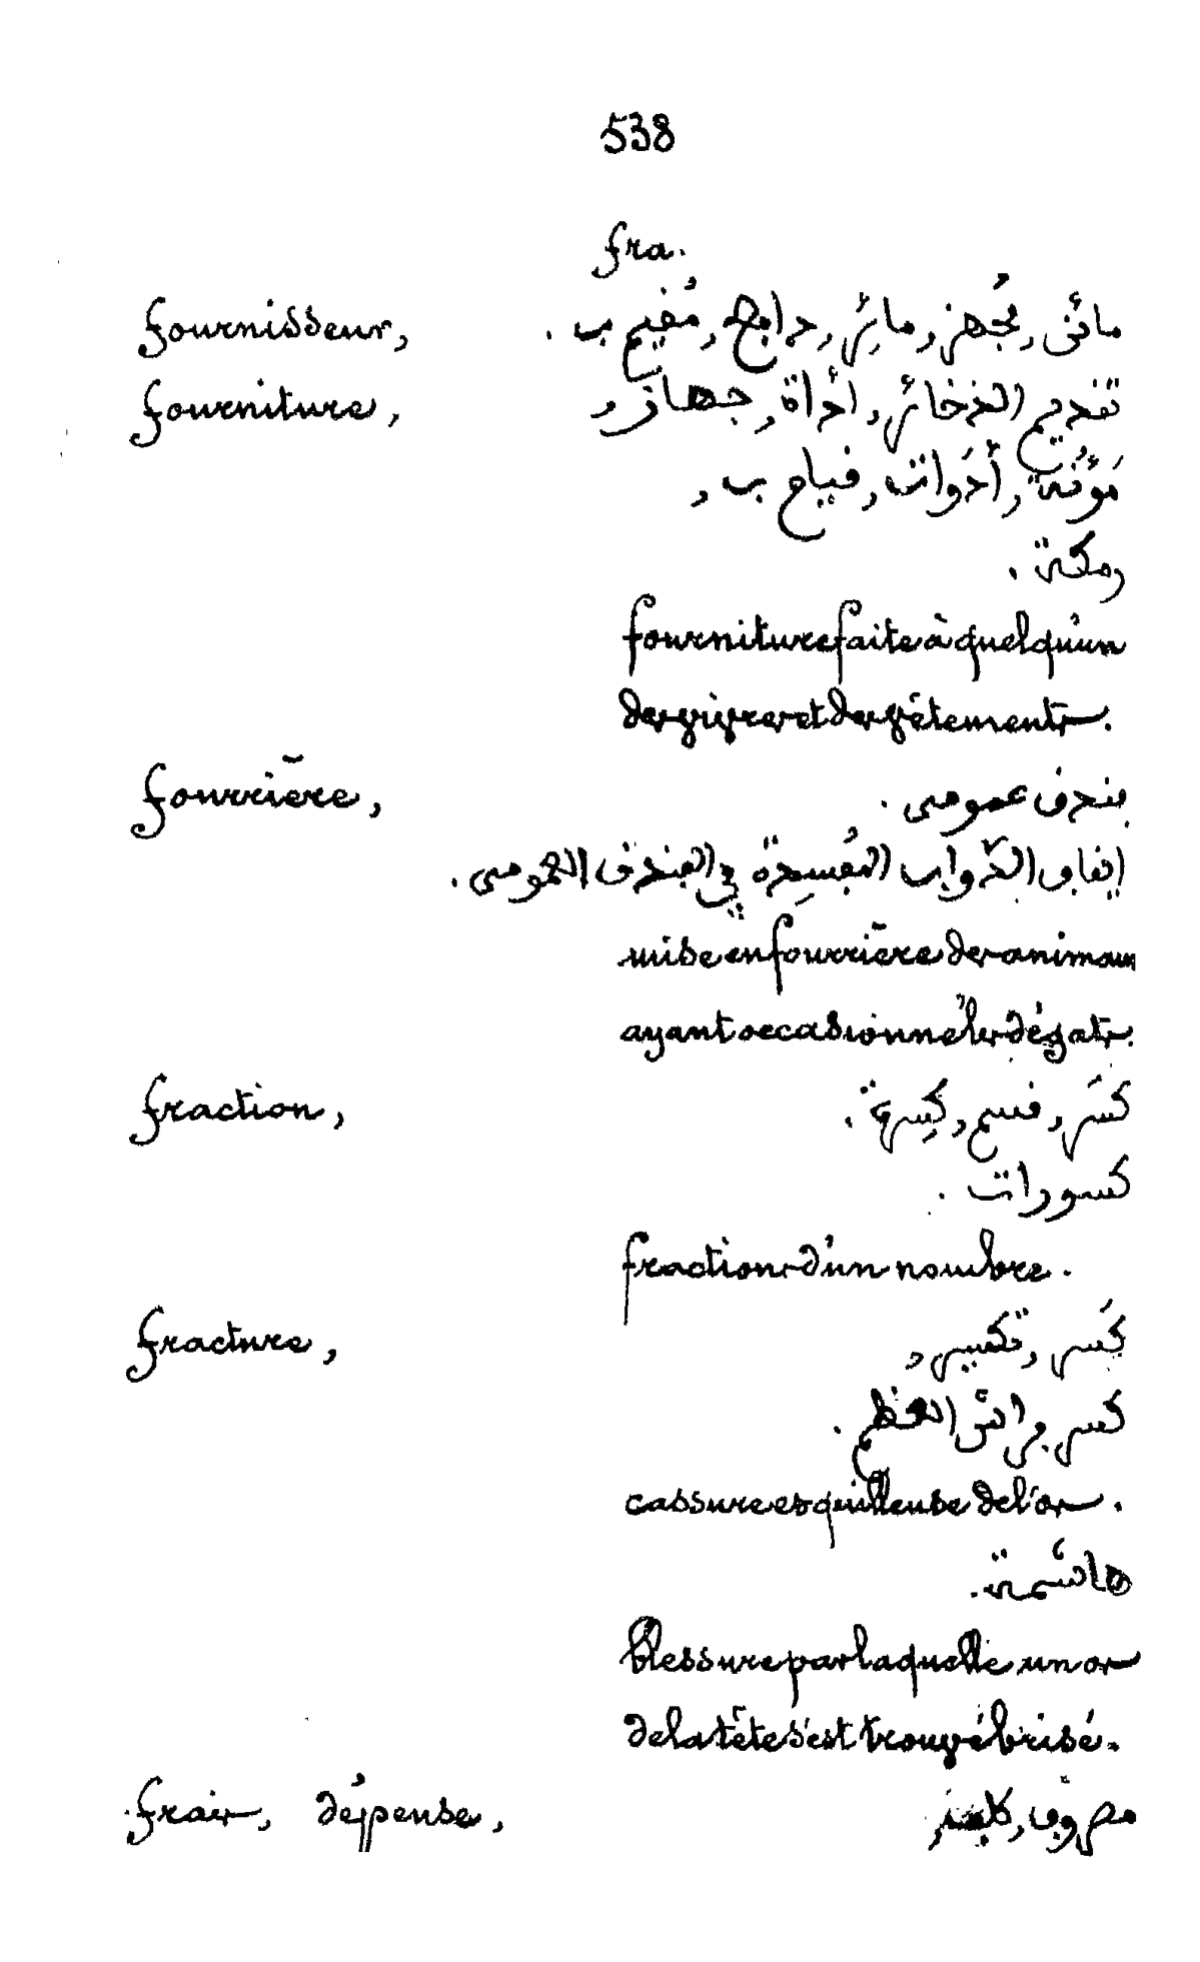 538
fra.
fournisseur, مائن, مُجهز, مائِر, دافع, مُفيم ب .
fourniture, تفديم الذخائر, أداة, جهاز,
مَؤُنة, أدَوات, فيام ب,
ومكة .
fourniture faite à quelqu'un
des vivres et des vêtements.
fourrière, بندق عمومى .
إيفاف الدّواب المُفسِدة في البندق العمومى .
mise en fourrière des animaux
ayant occasionné les dégats.
fraction, كسر, فسم, كِسرة .
كسورات .
fractions d'un nombre.
fracture, كَسر, تكسير,
كسر فراش العظم .
cassure esquilleuse de l'os .
هاشمة .
blessure par laquelle un os
de la tête s'est trouvé brisé.
frais, dépense, مصروف,